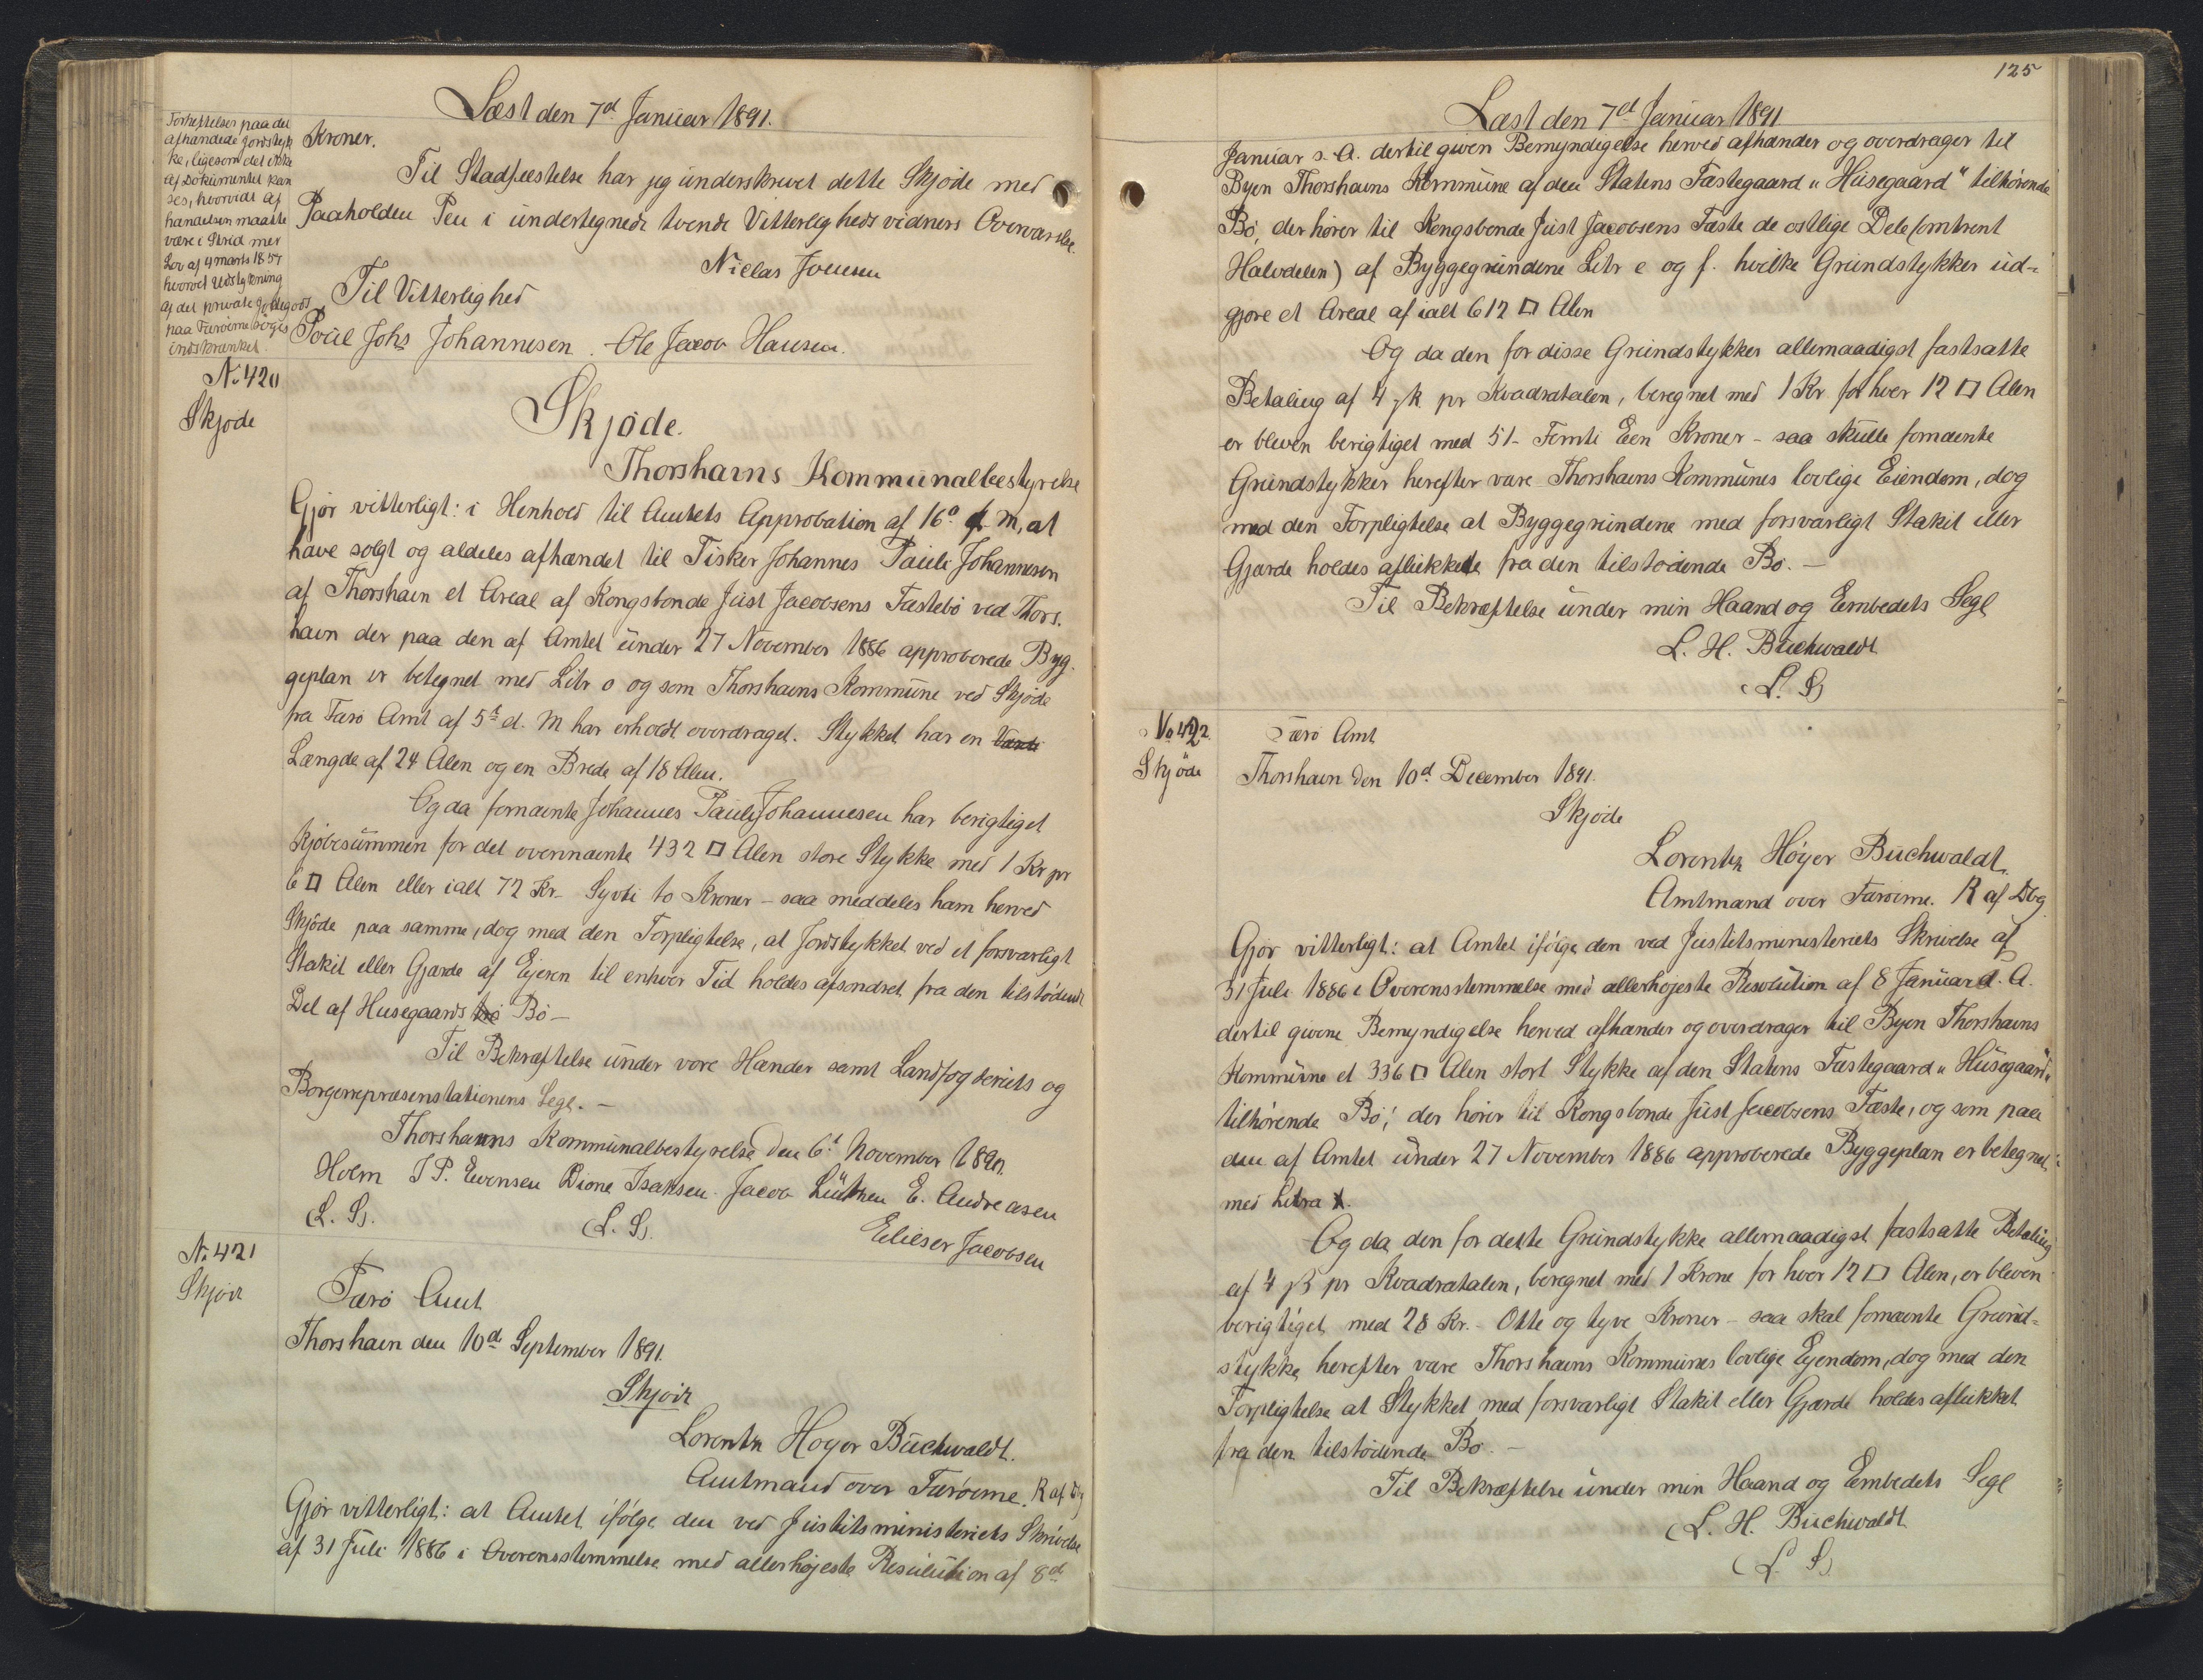 Læst den 7d Januar 1891.
Forheftelser paa det
afhændede Jordstyk
ke, ligesom det ikke
af Dokumentet kan
ses, hvorvidt af
handelsen maatte
være i Strid med
Lov af 4 marts 1857
hvorved Udstykning
af det private Jordegods
paa Færøerne søges
indskrænket.
Kroner.
Til Stadfæstelse har jeg underskrevet dette Skjøde med
Paaholden Pen i undertegnede tvende Vitterligheds vidners Overværelse.
Niclas Joensen
Til Vitterlighed
Poul Johs Johannesen . Ole Jacob Hansen.
No 420
Skjøde
Skjøde.
Thorshavns Kommunalbestyrelse
Gjør vitterligt: i Henhold til Amtets Approbation af 16d f. M, at
have solgt og aldeles afhændet til Fisker Johannes Pauli Johannesen
af Thorshavn et Areal af Kongsbonde Just Jacobsens Fæstebø ved Thors-
havn der paa den af Amtet under 27 November 1886 approberede Byg-
geplan er betegnet med Litr o og som Thorshavns Kommune ved Skjøde
fra Færø Amt af 5te d. M har erholdt overdraget. Stykket har en
Længde af 24 Alen og en Brede af 18 Alen.
Og da fornævnte Johannes Pauli Johannesen har berigtiget
Kjøbesummen for det ovennævnte 432 □ Alen store Stykke med 1 Kr pr
6 □ Alen eller ialt 72 Kr - Sytti to Kroner - saa meddeles ham herved
Skjøde paa samme, dog med den Forpligtelse, at Jordstykket ved et forsvarligt
Stakit eller Gjærde af Ejeren til enhver Tid holdes afsondret fra den tilstødende
Del af Husegaards bø Bø -
Til Bekræftelse under vore Hænder samt Landfogderiets og
Borgerrepræsenstationens Segl. -
Thorshavns Kommunalbestyrelse den 6t November 1890
Holm J P. Evensen Dione Isaksen. Jacob Lützen E. Andreasen
(L. S). (L. S). Elieser Jacobsen
No 421
Skjøde
Færø Amt
Thorshavn den 10d September 1891.
Skjøde
Lorentz Høyer Buchwaldt.
Amtmand over Færøerne. R af Dbg
Gjør vitterligt: at Amtet ifølge den ved Justitsministeriets Skrivelse
af 31 Juli 1886 i Overensstemmelse med allerhøjeste Resolution af 8d
125
Læst den 7d Januar 1891
Januar s. A. dertil given Bemyndigelse herved afhænder og overdrager til
Byen Thorshavns Kommune af den Statens Fæstegaard "Husegaard" tilhørende
Bø, der hører til Kongsbonde Just Jacobsens Fæste de østlige Dele (omtrent
Halvdelen) af Byggegrundene Litr e og f. hvilke Grundstykker ud-
gjøre et Areal af ialt 612 □ Alen
Og da den for disse Grundstykker allernaadigst fastsatte
Betaling af 4 sk. pr Kvadratalen, beregnet med 1 Kr for hver 12 □ Alen
er bleven berigtiget med 51 - Femti Een Kroner - saa skulle fornævnte
Grundstykker herefter være Thorshavns Kommunes lovlige Eiendom, dog
med den Forpligtelse at Byggegrundene med forsvarligt Stakit eller
Gjærde holdes aflukkede fra den tilstødende Bø. -
Til Bekræftelse under min Haand og Eembedets Segl
L. H. Buchwaldt
(L. S)
No 422.
Skjøde
Færø Amt
Thorshavn den 10d December 1891.
Skjøde
Lorentz Høyer Buchwaldt.
Amtmand over Færøerne. R af Dbg
Gjør vitterligt: at Amtet ifølge den ved Justitsministeriets Skrivelse af
31 Juli 1886 i Overensstemmelse med allerhøjeste Resolution af 8 Januar d. A.
dertil givne Bemyndigelse herved afhænder og overdrager til Byen Thorshavns
Kommune et 336 □ Alen stort Stykke af den Statens Fæstegaard "Husegaard"
tilhørende Bø, der hører til Kongsbonde Just Jacobsens Fæste, og som paa
den af Amtet under 27 November 1886 approberede Byggeplan er betegnet
med Litra
Og da den for dette Grundstykke allernaadigst fastsatte Betaling
af 4 sk pr Kvadratalen, beregnet med 1 Krone for hver 12 □ Alen, er bleven
berigtiget med 28 Kr. - Otte og tyve Kroner - saa skal fornævnte Grund-
stykke herefter være Thorshavns Kommunes lovlige Ejendom, dog med den
Forpligtelse at Stykket med forsvarligt Stakit eller Gjærde holdes aflukket
fra den tilstødende Bø. -
Til Bekræftelse under min Haand og Eembedets Segl
L. H. Buchwaldt
(L. S)